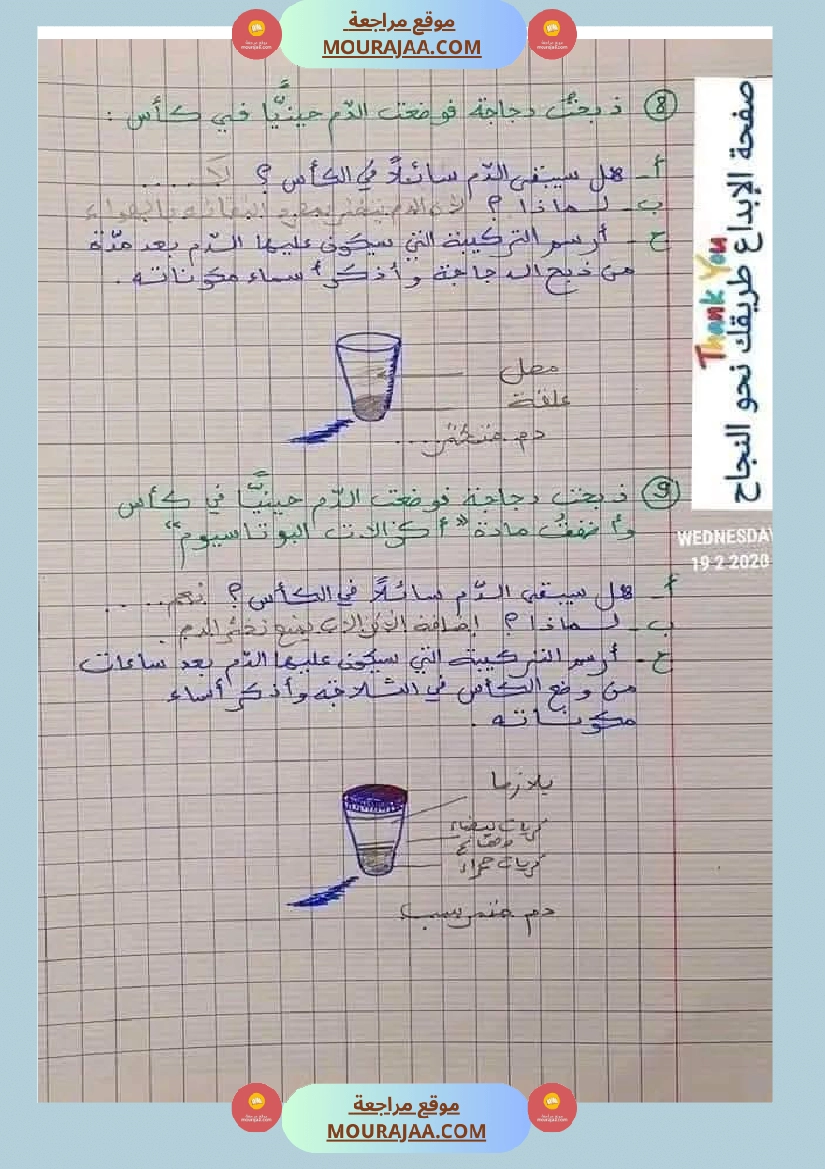 موقع مراجعة
MOURAJAA.COM
8 ذبحتُ دجاجة فوضعت الدّم حينيًّا في كأس :
أ - هل سيبقى الدّم سائلاً في الكأس ؟ لا .....
ب - لـماذا ؟ لأن الدم يتخثر بمجرد التقائه بالهواء
ج - أرسم التركيبة التي سيكون عليها الدّم بعد مدّة
من ذبح الدجاجة و أذكر أسماء مكوناته .
مصل
علقة
دم متخثر ....
9 ذبحت دجاجة فوضعت الدّم حينيًّا في كأس
وأضفتُ مادة " أكزالات البوتاسيوم "
أ - هل سيبقى الدّم سائلاً في الكأس ؟ نعم ......
ب - لـماذا ؟ إضافة الأكزالات يمنع تخثر الدم .
ج - أرسم التركيبة التي سيكون عليها الدّم بعد ساعات
من وضع الكأس في الثلاجة وأذكر أسماء
مكوناته .
بلازما
كريات بيضاء
وصفائح
كريات حمراء
دم مترسب
صفحة الإبداع طريقك نحو النجاح
Thank You
WEDNESDAY
19 2 2020
موقع مراجعة
MOURAJAA.COM